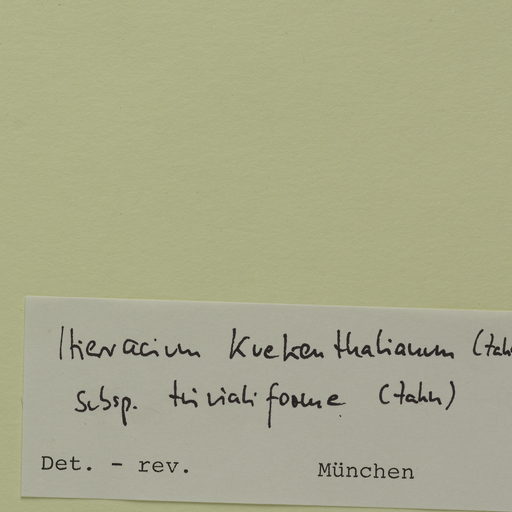 Hieracium Kuekenthalianum (Zahn
Subsp. trivialiforme (Zahn)
Det. - rev. München